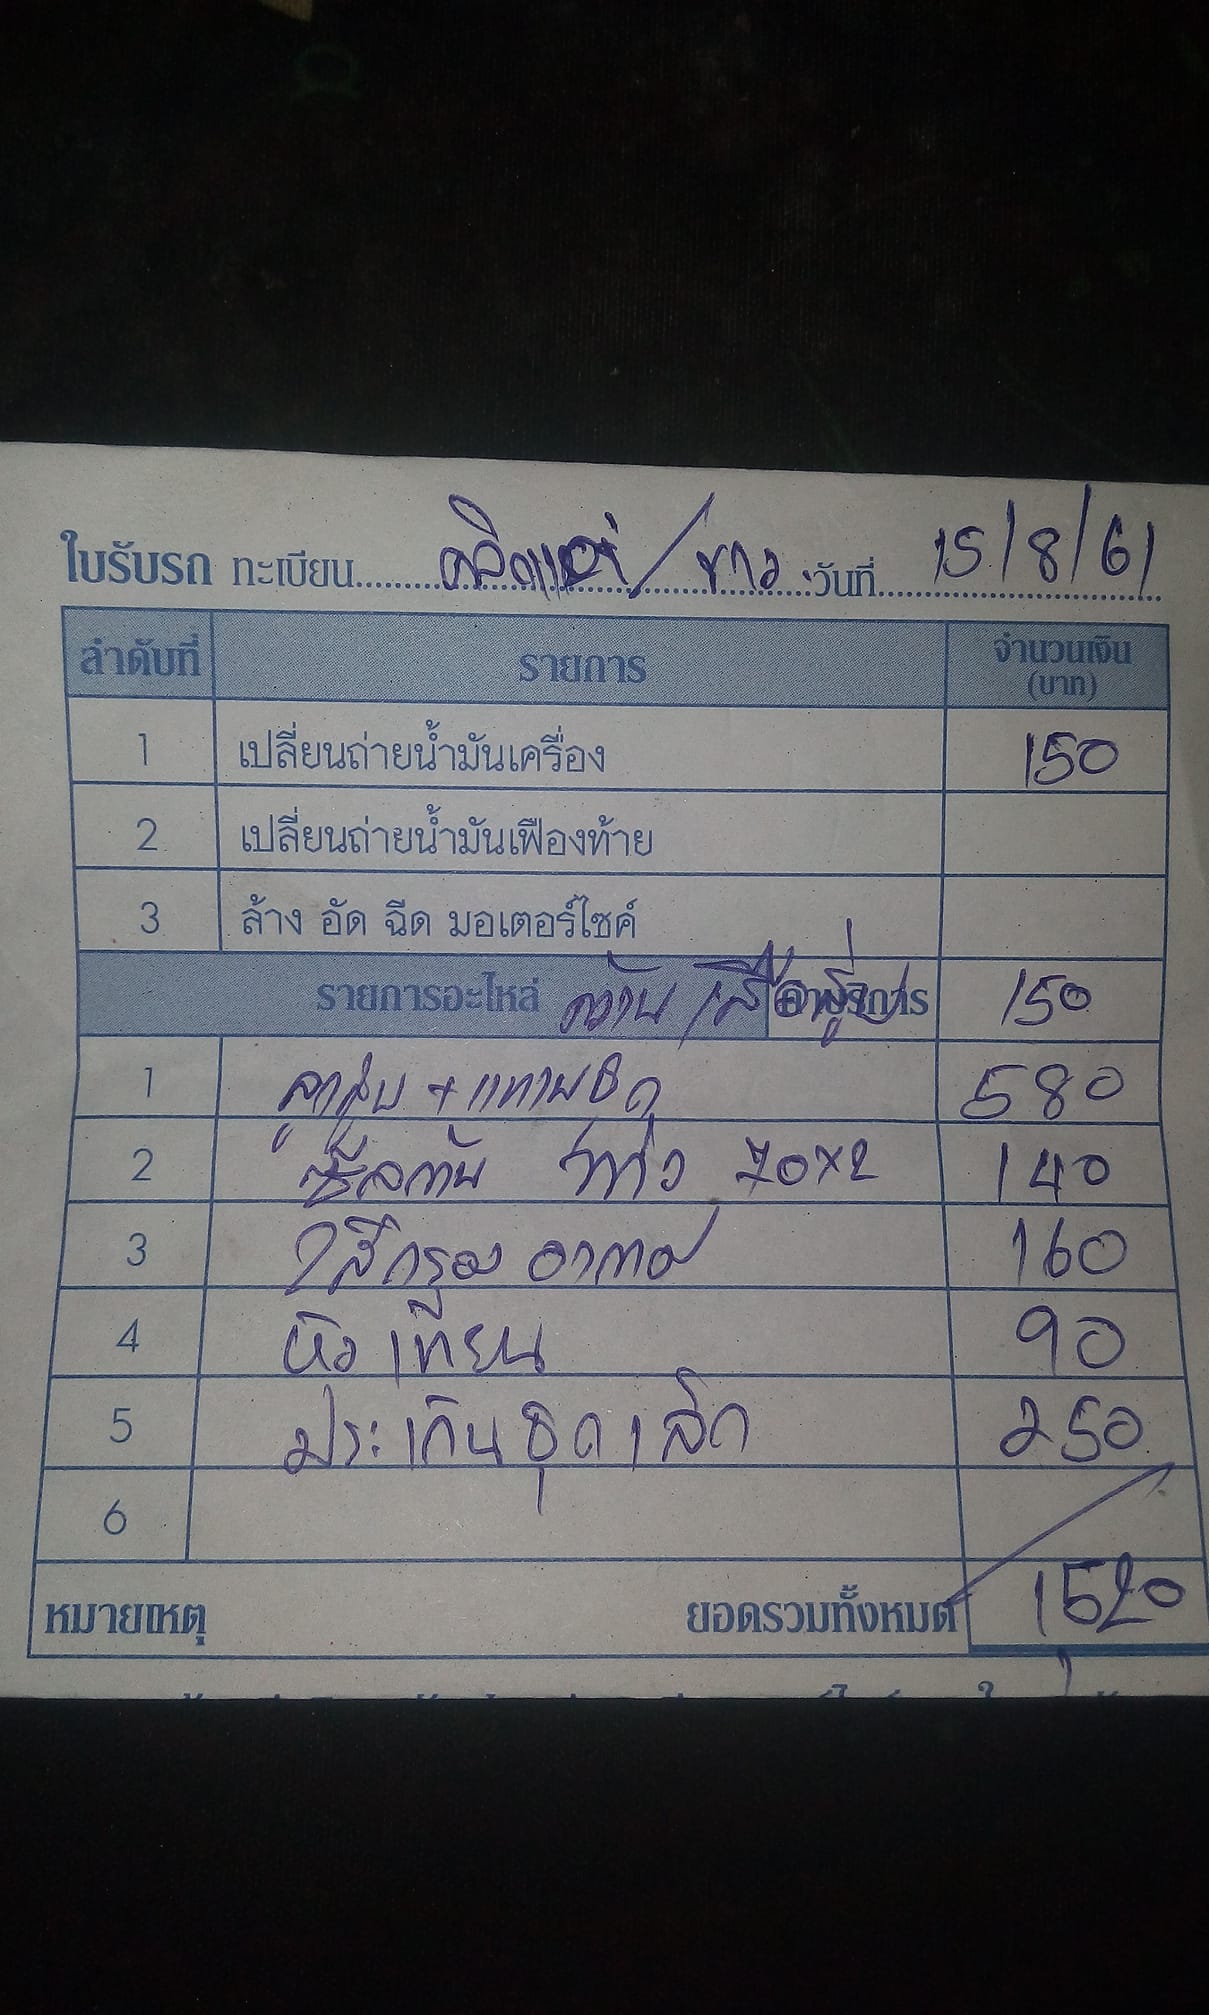 ใบรับรถ ทะเบียน คลิกแต่/ขาว วันที่ 15/8/61
ลำดับที่ รายการ จำนวนเงิน (บาท)
1 เปลี่ยนถ่ายน้ำมันเครื่อง 150
2 เปลี่ยนถ่ายน้ำมันเฟืองท้าย
3 ล้าง อัด ฉีด มอเตอร์ไซค์
รายการอะไหล่ คว้าน เสื้อสูบ ค่าบริการ 150
1 ลูกสูบ + แหวนชุด 580
2 ซีลวาล์ว 70x2 140
3 ไส้กรอง อากาศ 160
4 หัวเทียน 90
5 ประเก็นชุดเล็ก 250
6
หมายเหตุ ยอดรวมทั้งหมด 1520